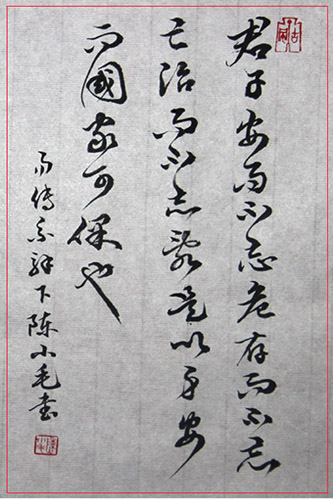 君子安而不忘危存而不忘
亡治而不忘亂是以身安
而國家可保也
易傳系辭下陳小毛書